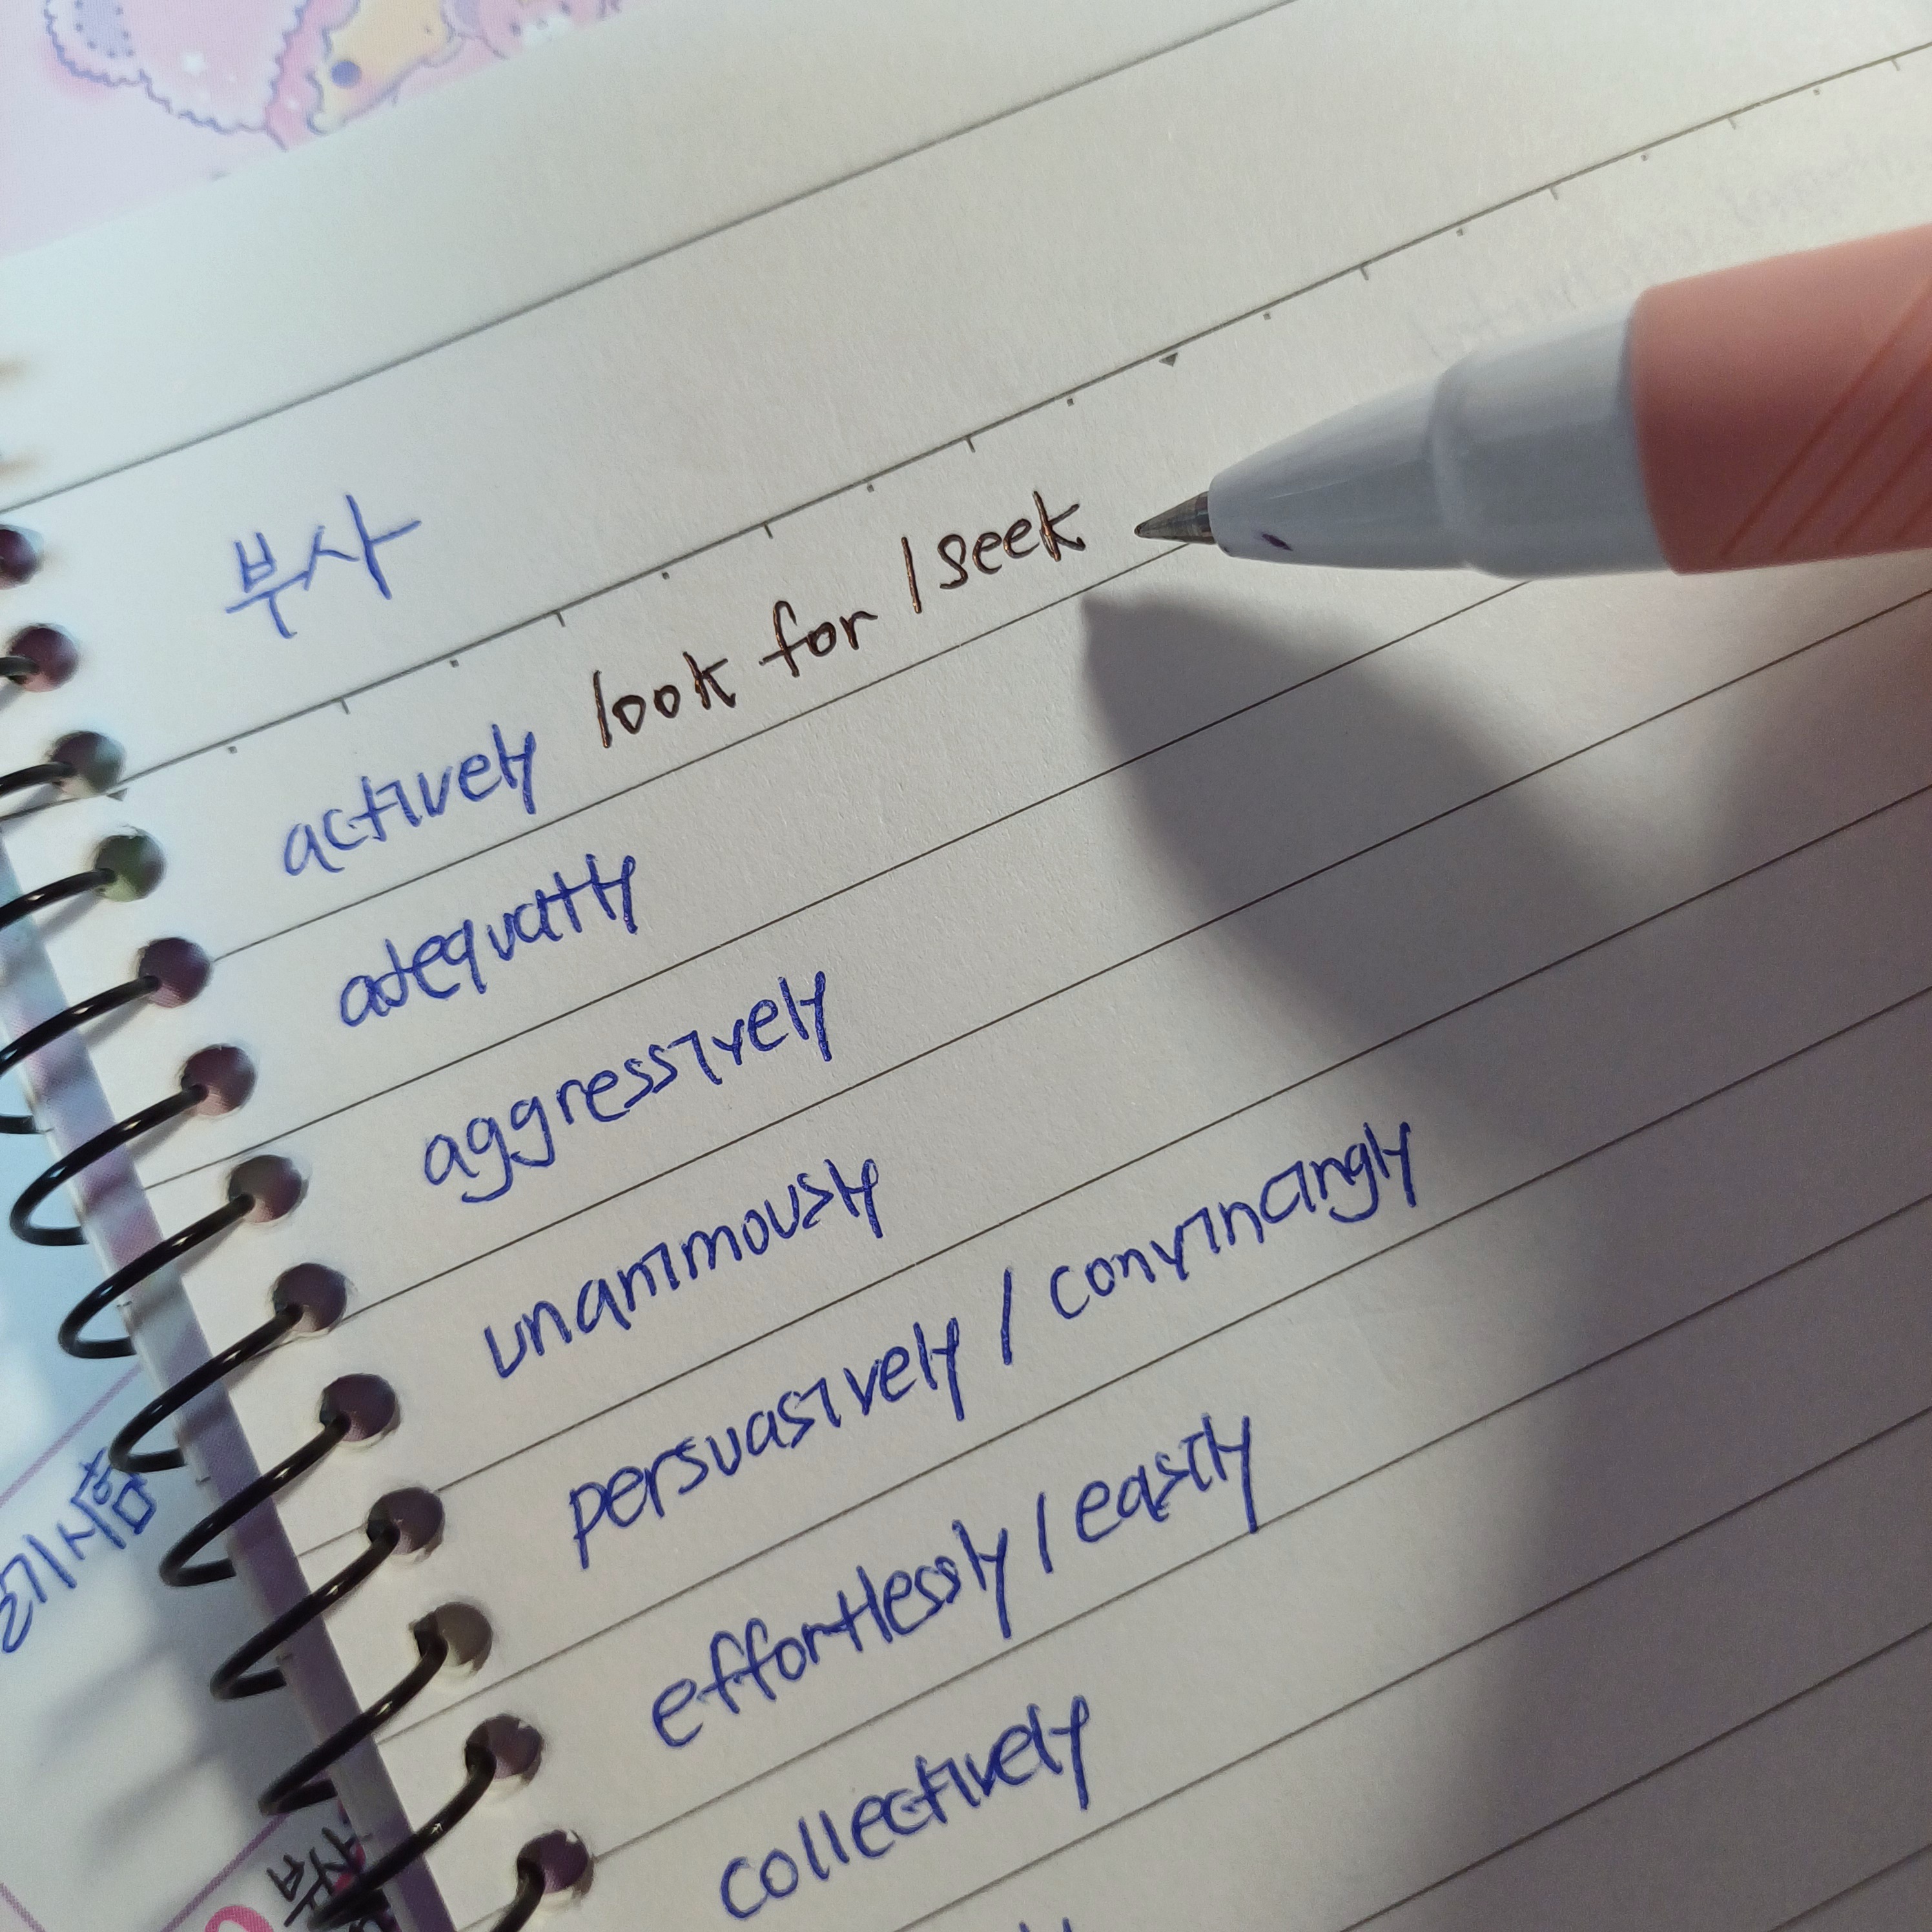 부사
actively look for / seek
adequatly
aggressively
unanimously
persuasively / convincingly
effortlessly / easily
collectively